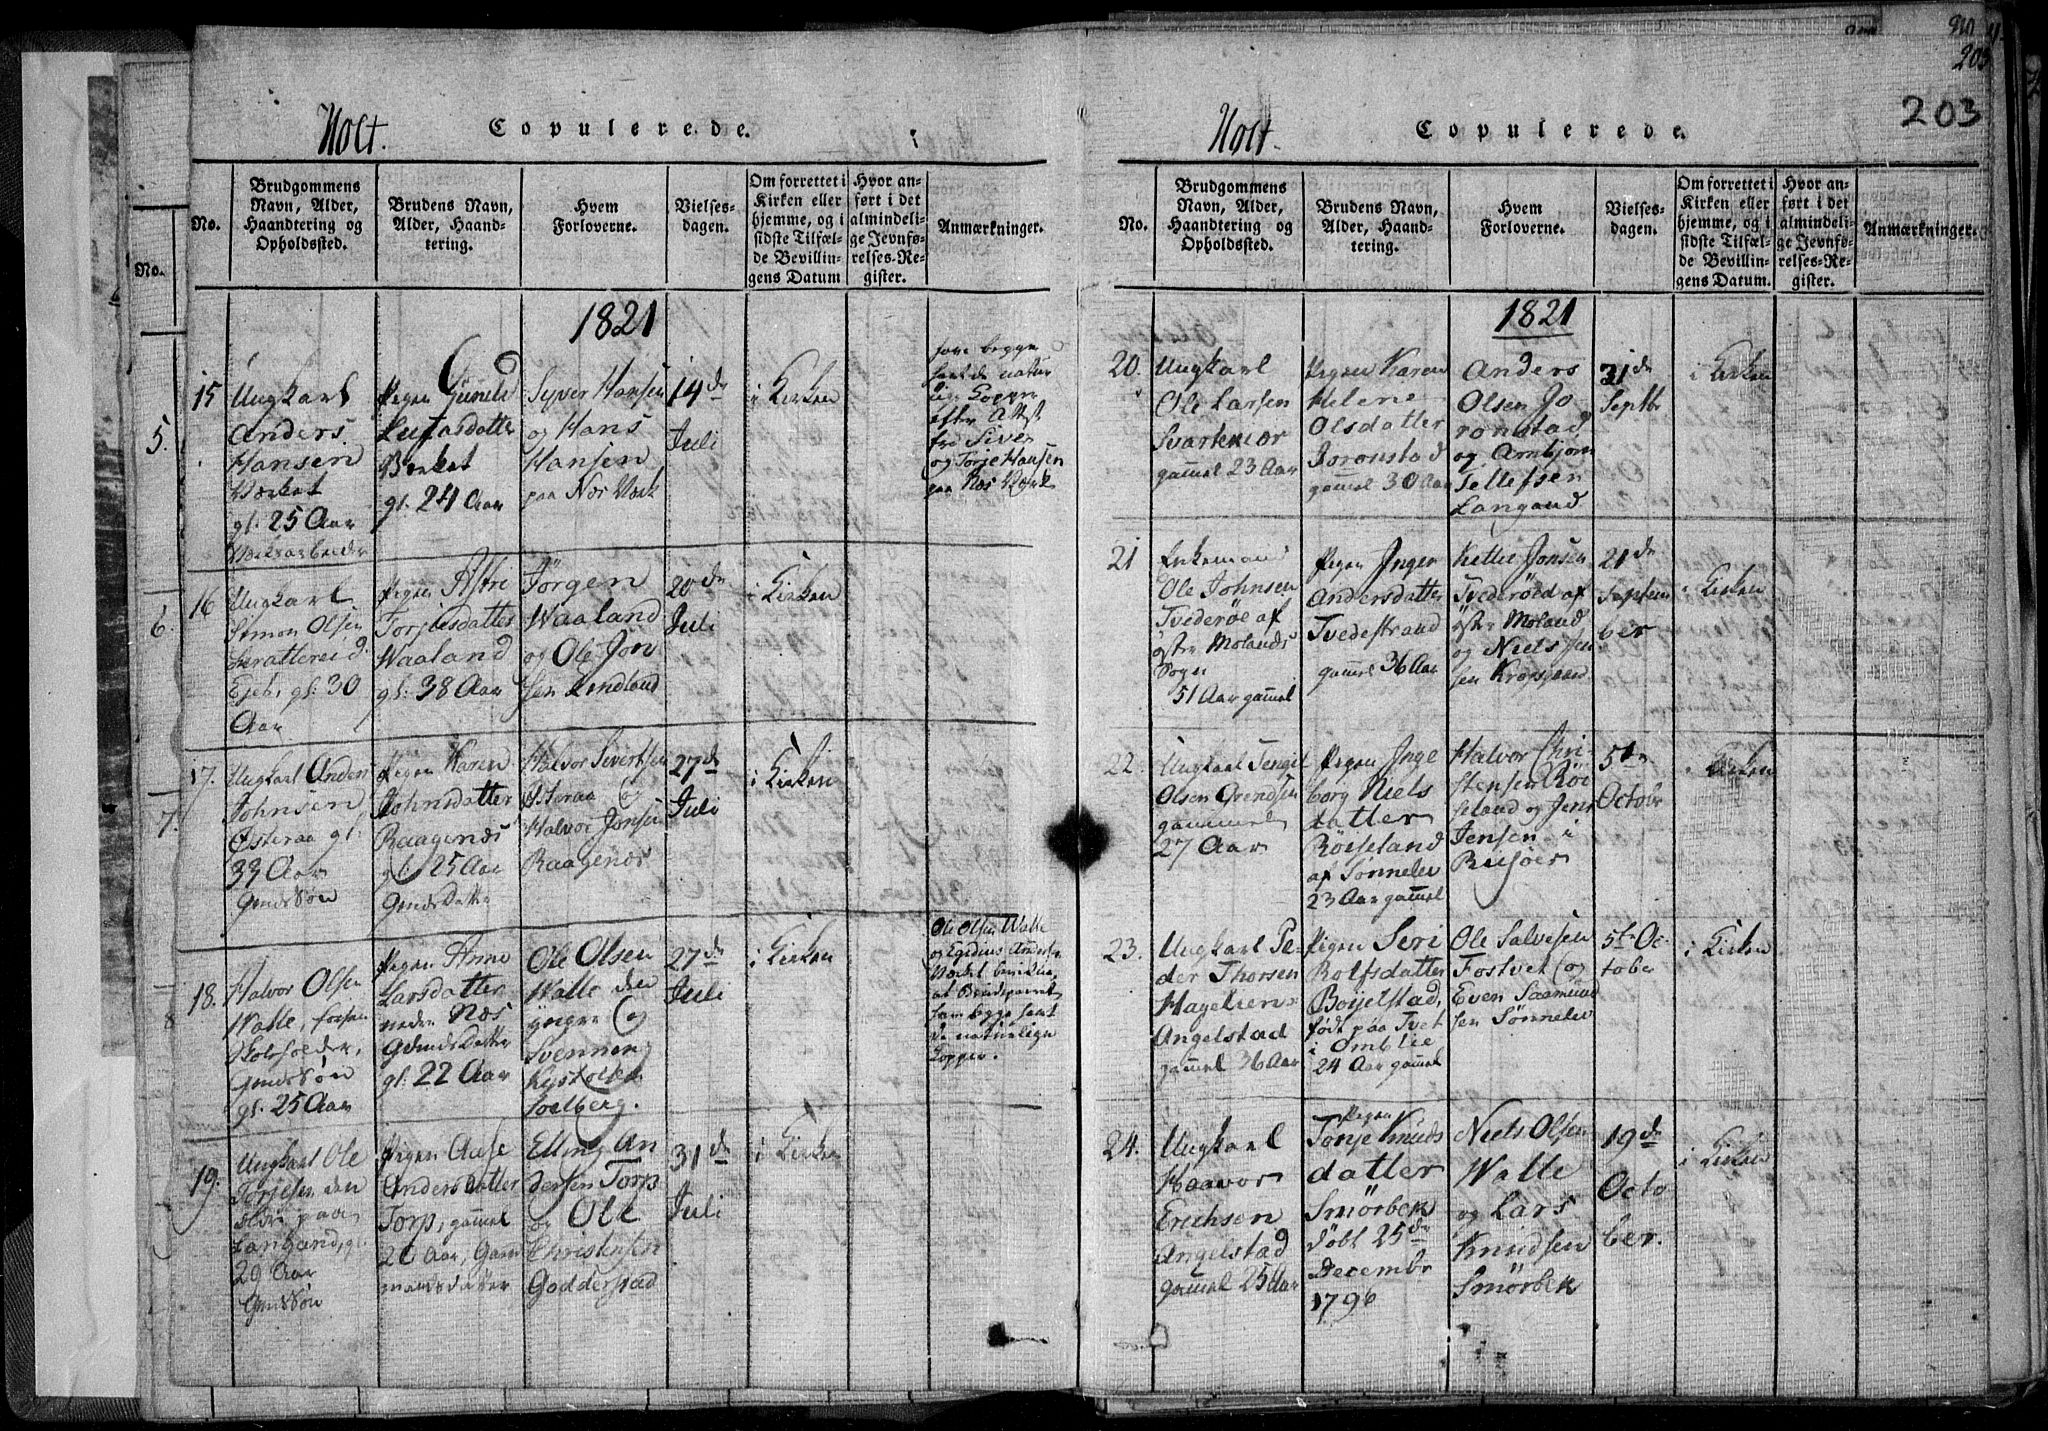 Holt.
Copulerede.
No.
Brudgommens
Navn, Alder,
Haandtering og
Opholdssted.
Brudens Navn,
Alder, Haand-
tering.
Hvem
Forloverne.
Vielses-
dagen.
Om forrettet i
Kirken eller
hjemme, og i
sidste Tilfæl-
de Bevillin-
gens Datum
Hvor an-
ført i det
almindeli-
ge Jevnfø-
relses-Re-
gister.
Anmærkninger.
No.
5.
6.
7.
8
1821
15
Ungkarl
Anders
Hansen
Værket
gl. 25 Aar
Værksarbeider
Pigen Gunild
Værket
gl. 24 Aar
Syver Hansen
og Hans
Hansen
paa Næs Værk
14de
Juli
i Kirken
have begge
havt de natur
lige Kopper
efter Attest
fra Siver
og Torje Hansen
paa Næs Værk
16
Ungkarl
Simon Olsen
Ejet, gl: 30
Aar
Pigen Astre
Torjusdatter
Waaland
gl: 38 Aar
Jörgen
Waaland
og Ole Jon
sen Lindland
20de
Juli
i Kirken
17.
Ungkarl Anders
Johnsen
Østeraa gl:
33 Aar
Gmds Søn
Pigen Karen
Johnsdatter
Raagenæs
gl. 25 Aar
Gmds Datter
Halvor Sivertsen
Østeraa og
Halvor Jonsen
Raagenæs
27de
Juli
i Kirken
18.
Halvor Olsen
Walle, forhen
Soldat,
Gmds Søn
gl. 25 Aar
Pigen Anne
Larsdatter
neden Næs
Gmds Datter
gl: 22 Aar
Ole Olsen
Walle den
yngre og
Svennun
Solberg.
27de
Juli
i Kirken
Ole Olsen Walle
og Egidius Anders.
Værket bevidne,
at Brudeparret
har begge havt
de naturlige
Kopper.
19.
Ungkarl Ole
Torjesen den
ældre paa
Langand, gl.
29 Aar
Gmds Søn
Pigen Aase
Andersdatter
Torp, gammel
Aar, Gaard
mandsdatter
Elling An
dersen Torp
og Ole
Christensen
Godderstad
31de
Juli
i Kirken
203
203
Holt.
Copulerede.
No.
Brudgommens
Navn, Alder,
Haandtering og
Opholdssted.
Brudens Navn,
Alder, Haand-
tering.
Hvem
Forloverne.
Vielses-
dagen.
Om forrettet i
Kirken eller
hjemme, og i
sidste Tilfæl-
de Bevillin-
gens Datum.
Hvor an-
ført i det
almindeli-
ge Jevnfø-
relses-Re-
gister.
Anmærkninger.
1821
20.
Ungkarl
Ole Larsen
Svartkiær
gammel 23 Aar
Pigen Karen
Helene
Olsdatter
Joronstad
gammel 30 Aar
Anders
Olsen Jo
ronstad
og Arnbjorn
Tellefsen
Langand
31de
Septbr
i Kirken
21
Enkemand
Ole Johnsen
Tvederöe af
östre Molands
Sogn
51 Aar gammel
Pigen Inger
Andersdatter
Tvedestrand
gammel 36 Aar
Kittel Jonsen
Tvederöed af
östre Moland
og Niels Jen
sen
21de
Septem
ber
i Kirken
22.
Ungkarl Tengil
Olsen Grendsen
gammel
27 Aar
Pigen Inge
borg Niels
datter
Röiseland
af Sönneløv
23 Aar gammel
Halvor Chri
stensen Röi
seland og Jens
Jensen i
Riisöer
5te
Octobr
i Kirken
23.
Ungkarl Pe-
der Thorsen
Hagelien-
Angelstad
gammel 36 Aar
Pigen Seri
Rolfsdatter
Bojelstad,
född paa Tvet
i Omblie
24 Aar gammel
Ole Salvesen
Fostvet og
Even Saamund
sen Sönneløv
5te Oc-
tober
i Kirken
24.
Ungkarl
Haavor
Erichsen
Angelstad
gammel 25 Aar
Pigen
Tonje Knuds
datter
Smörbek
döbt 25de
Decembr
1796
Niels Olsen
Walle
og Lars
Knudsen
Smörbek
19de
Octo
ber.
i Kirken